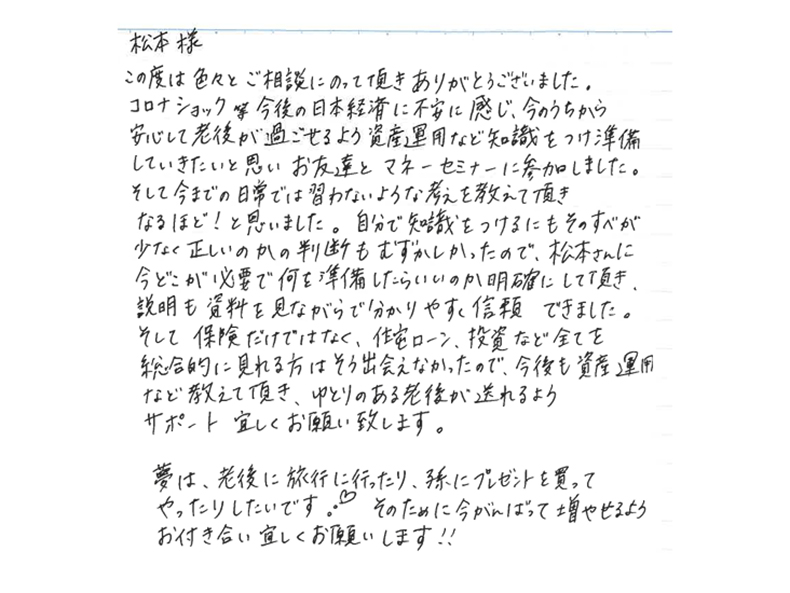 松本様
この度は色々とご相談にのって頂きありがとうございました。
コロナショック等今後の日本経済に不安に感じ、今のうちから
安心して老後が過ごせるよう資産運用など知識をつけ準備
していきたいと思いお友達とマネーセミナーに参加しました。
そして今までの日常では習わないような考えを教えて頂き
なるほど!と思いました。自分で知識をつけるにもそのすべが
少なく正しいのかの判断もむずかしかったので、松本さんに
今どこが必要で何を準備したらいいのか明確にして頂き、
説明も資料を見ながらで分かりやすく信頼できました。
そして保険だけではなく、住宅ローン、投資など全てを
総合的に見れる方はそう出会えなかったので、今後も資産運用
など教えて頂き、ゆとりのある老後が送れるよう
サポート宜しくお願い致します。
夢は、老後に旅行に行ったり、孫にプレゼントを買って
やったりしたいです。♡ そのために今がんばって増やせるよう
お付き合い宜しくお願いします!!